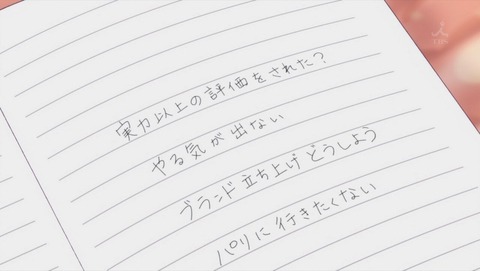 実力以上の評価をされた?
やる気が出ない
ブランド立ち上げどうしよう
パリに行きたくない
TBS